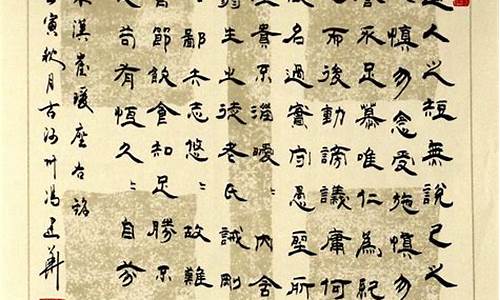 道人之短無說己之
慎勿念受施慎勿
不足慕唯仁為紀
而後動謗議庸何
名過實守愚聖所
貴不淄曖〻內含
弱生之徒老氏誡剛
〻鄙夫志悠〻故難
節飲食知足勝不
之苟有恆久〻自芬
漢崔瑗座右銘
寅秋月古河州馮華